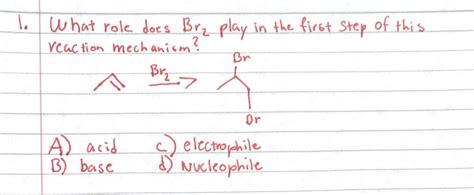 1. What role does Br2 play in the first step of this
reaction mechanism?
Br
Br2
Br
A) acid c) electrophile
B) base d) Nucleophile